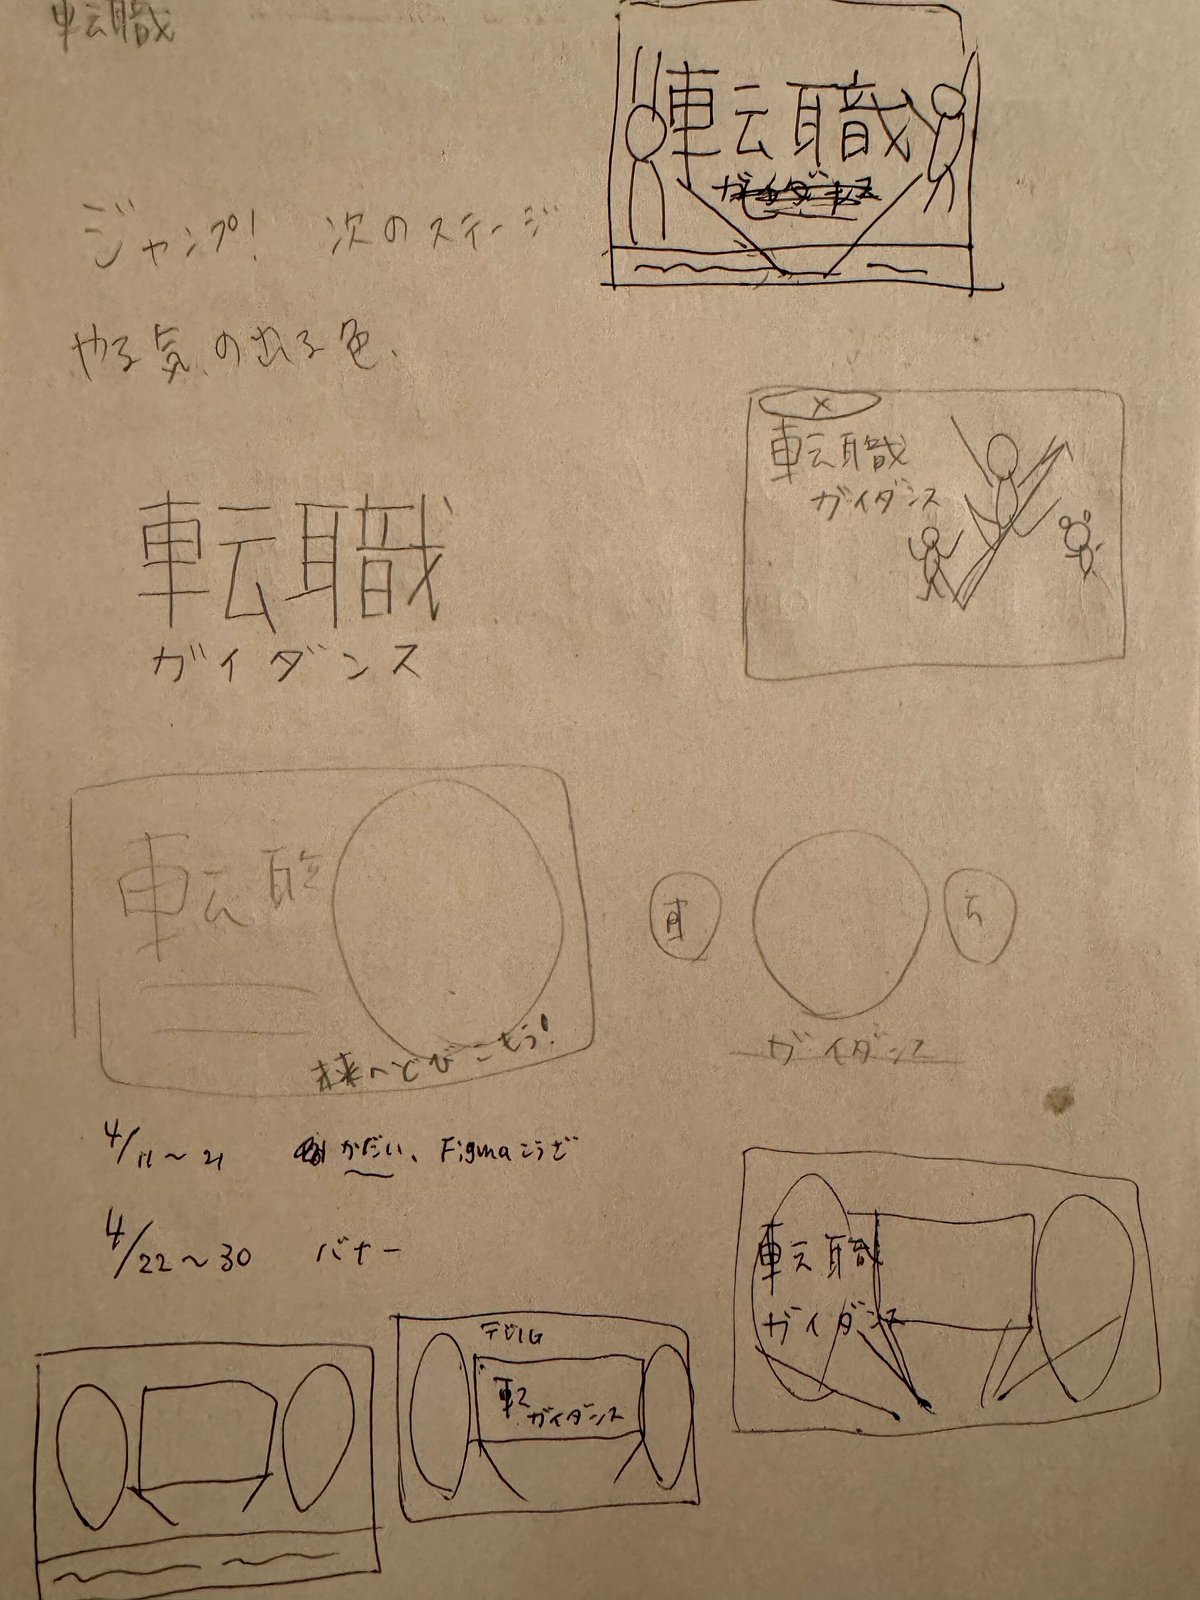 転職
転職
ガイダンス
ジャンプ! 次のステージ
やる気の出る色、
転職
ガイダンス
転職
ガイダンス
転云耳
車
云
未来へとびこもう!
ガイダンス
4/11〜21 かだい、Figmaこうざ
4/22〜30 バナー
転職
ガイダンス
転
ガイダンス